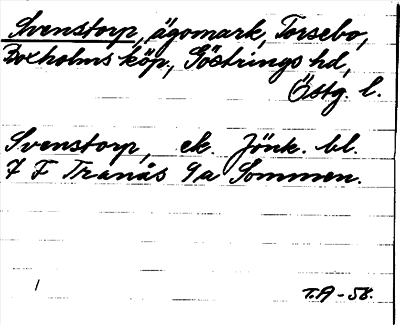 Svenstorp, ägomark, Torsebo,
Boxholms köp, Göstrings hd,
Östg. l.
Svenstorp, ek. Jönk. bl.
7 F Tranås 9a Sommen.
T.A-58.